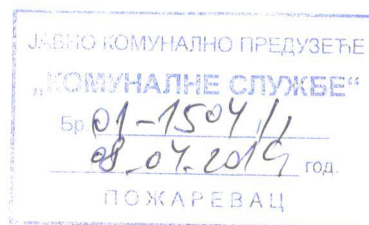 ЈАВНО КОМУНАЛНО ПРЕДУЗЕЋЕ
„КОМУНАЛНЕ СЛУЖБЕ“
Бр. 01-1504/1
08.04.2014 год.
ПОЖАРЕВАЦ